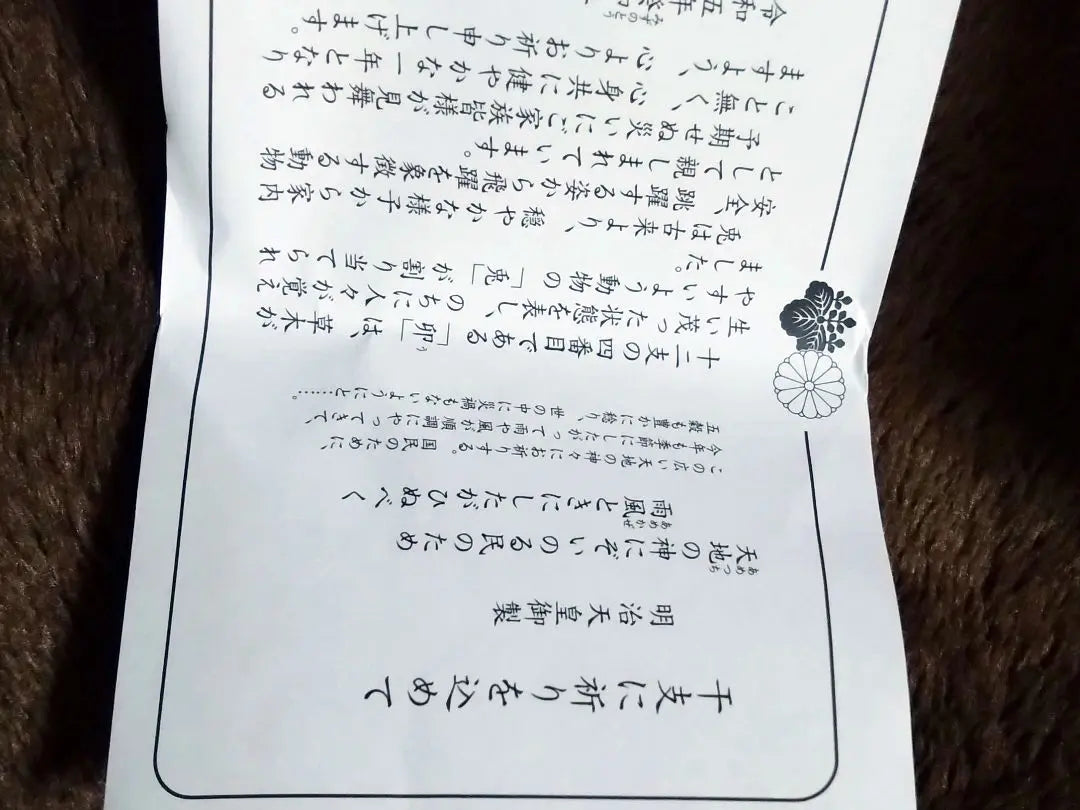 干支に祈りを込めて
明治天皇御製
あめつち
天地の神にぞいのる民のため
あめかぜ
雨風ときにしたがひぬべく
この広い天地の神々にお祈りする。国民のために、
今年も季節にしたがって雨や風が順調にやってきて、
五穀も豊かに稔り、世の中に災禍もないようにと……。
う
十二支の四番目である「卯」は、草木が
生い茂った状態を表し、のちに人々が覚え
やすいよう動物の「兎」が割り当てられ
ました。
兎は古来より、穏やかな様子から家内
安全、跳躍する姿から飛躍を象徴する動物
として親しまれています。
予期せぬ災いにご家族皆様が見舞われる
こと無く、心身共に健やかな一年となり
ますよう、心よりお祈り申し上げます。
みずのとう
令和五年癸